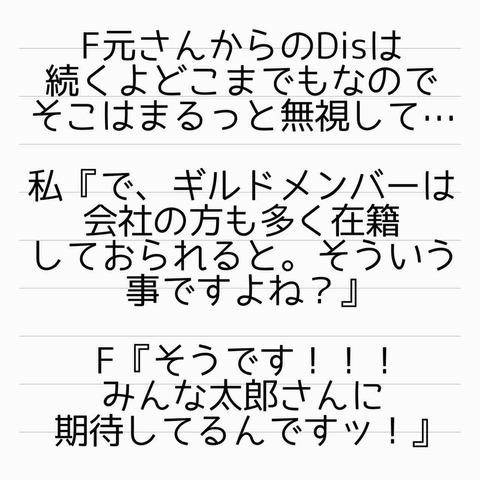 F元さんからのDisは
続くよどこまでもなので
そこはまるっと無視して…
私『で、ギルドメンバーは
会社の方も多く在籍
しておられると。そういう
事ですよね？』
F『そうです！！！
みんな太郎さんに
期待してるんですッ！』